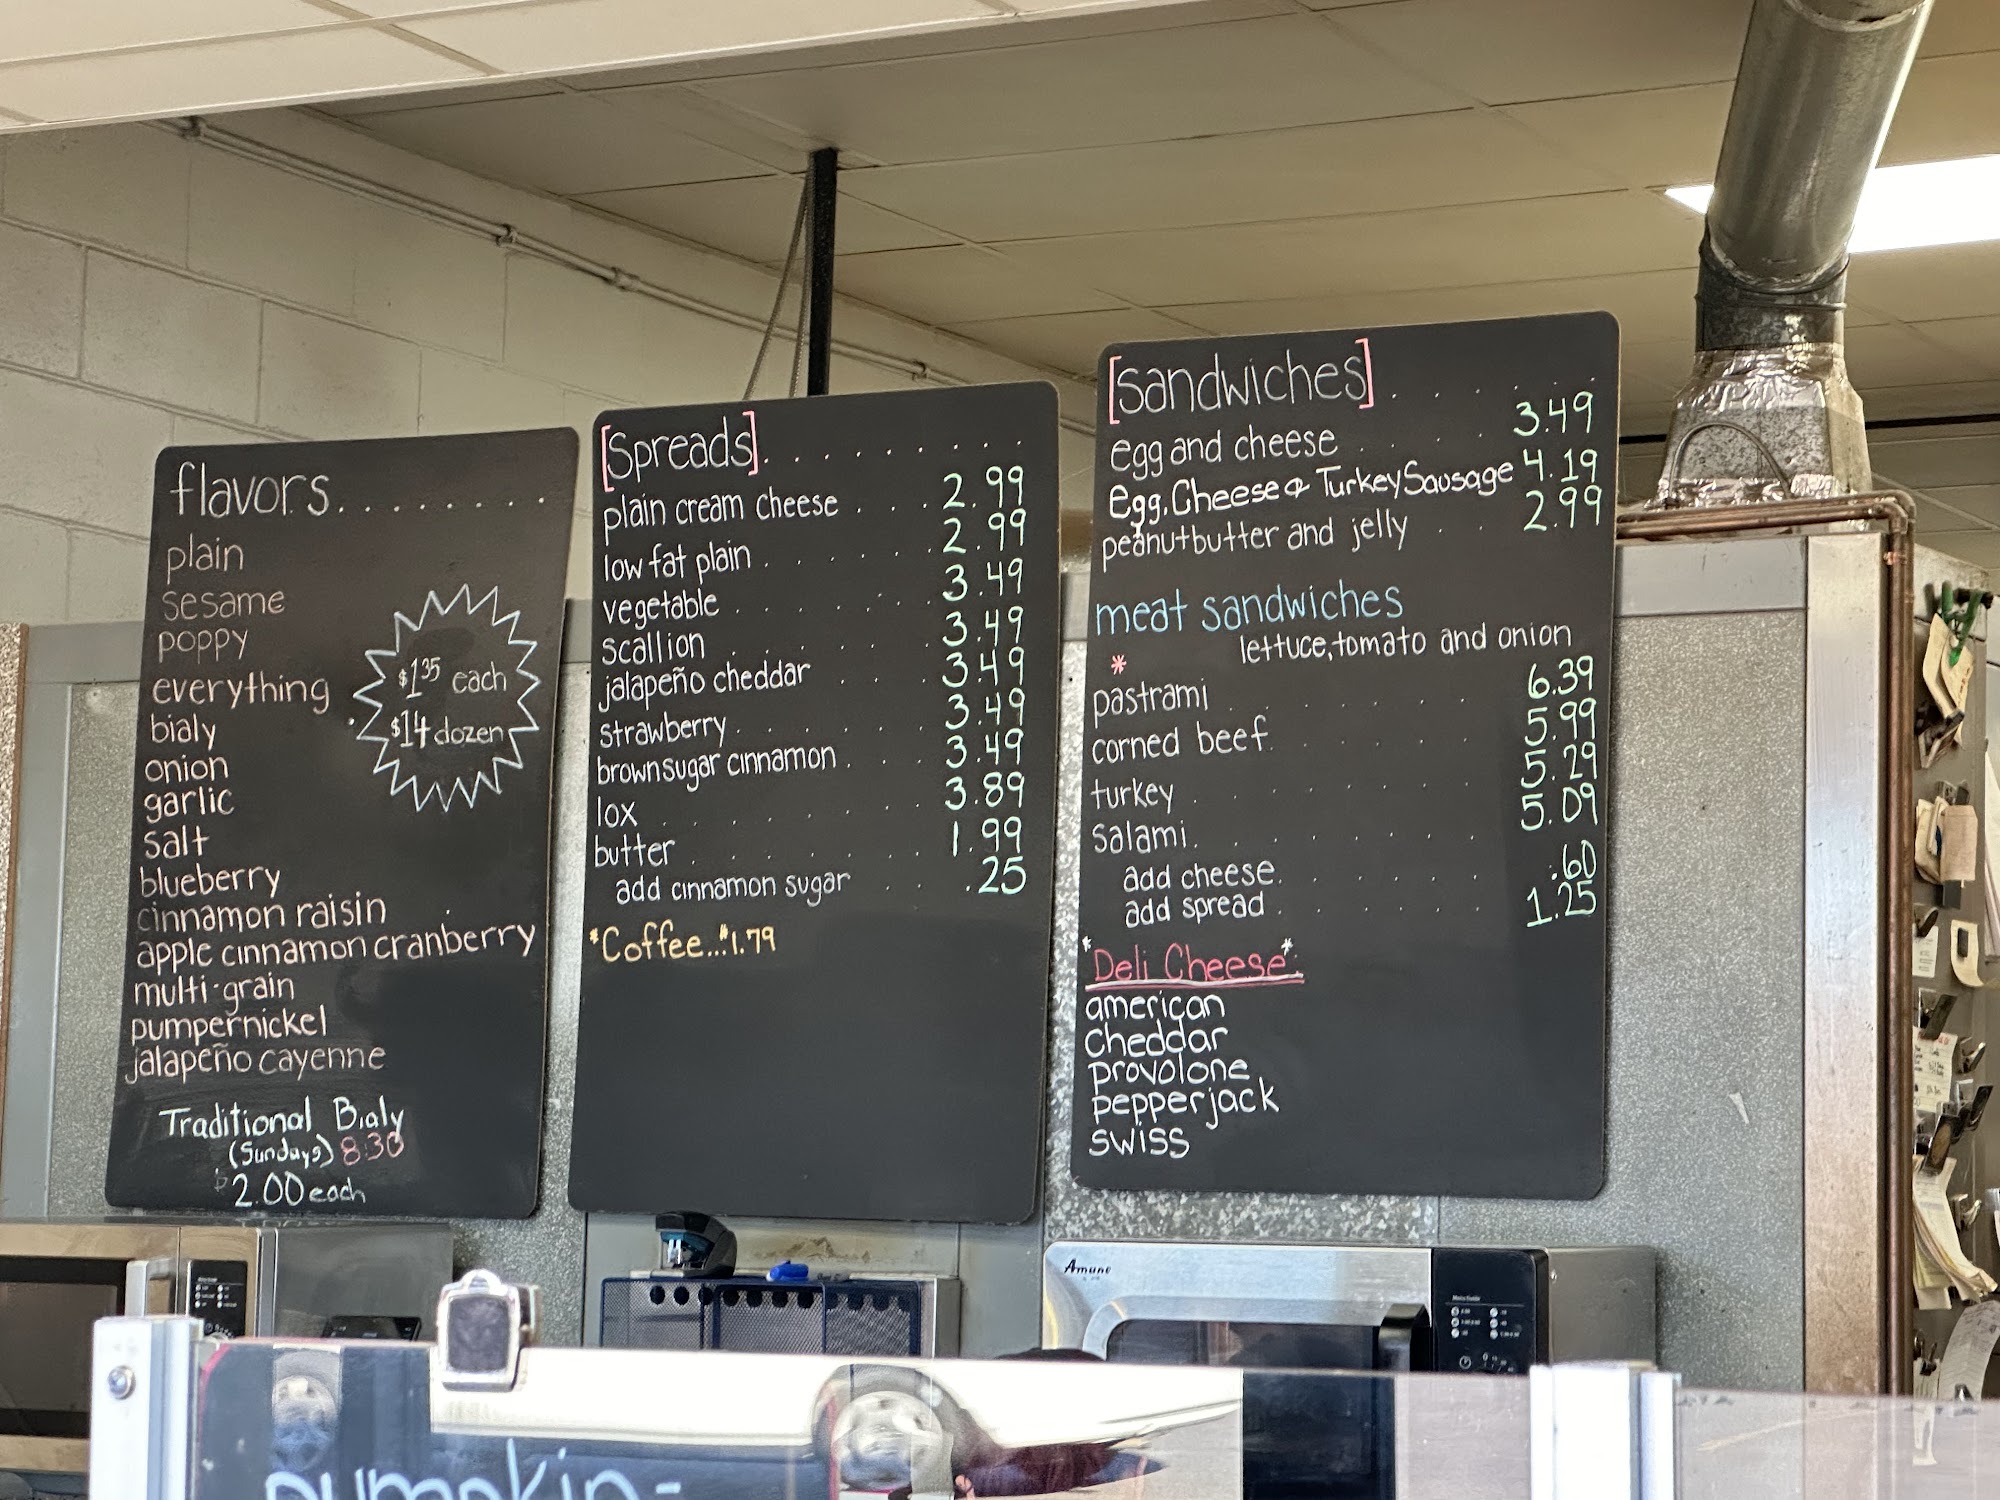 flavors........
plain
sesame
poppy
everything
bialy
onion
garlic
salt
blueberry
cinnamon raisin
apple cinnamon cranberry
multi-grain
pumpernickel
jalapeño cayenne
$1.35 each
$14 dozen
Traditional Bialy
(Sundays) 8:30
$2.00 each
[Spreads]........
plain cream cheese ... 2.99
low fat plain ...... 2.99
vegetable ...... 3.49
scallion ...... 3.49
jalapeño cheddar ... 3.49
strawberry ...... 3.49
brownsugar cinnamon ... 3.49
lox ....... 3.89
butter ....... 1.99
add cinnamon sugar .. .25
*Coffee...$1.79
[Sandwiches]......
egg and cheese .... 3.49
Egg, Cheese & Turkey Sausage 4.19
peanutbutter and jelly .. 2.99
meat sandwiches
* lettuce, tomato and onion
pastrami ...... 6.39
corned beef ...... 5.99
turkey ....... 5.29
salami ....... 5.09
add cheese ...... .60
add spread ...... 1.25
*Deli Cheese*:
american
cheddar
provolone
pepperjack
swiss
Amana
pumpkin-